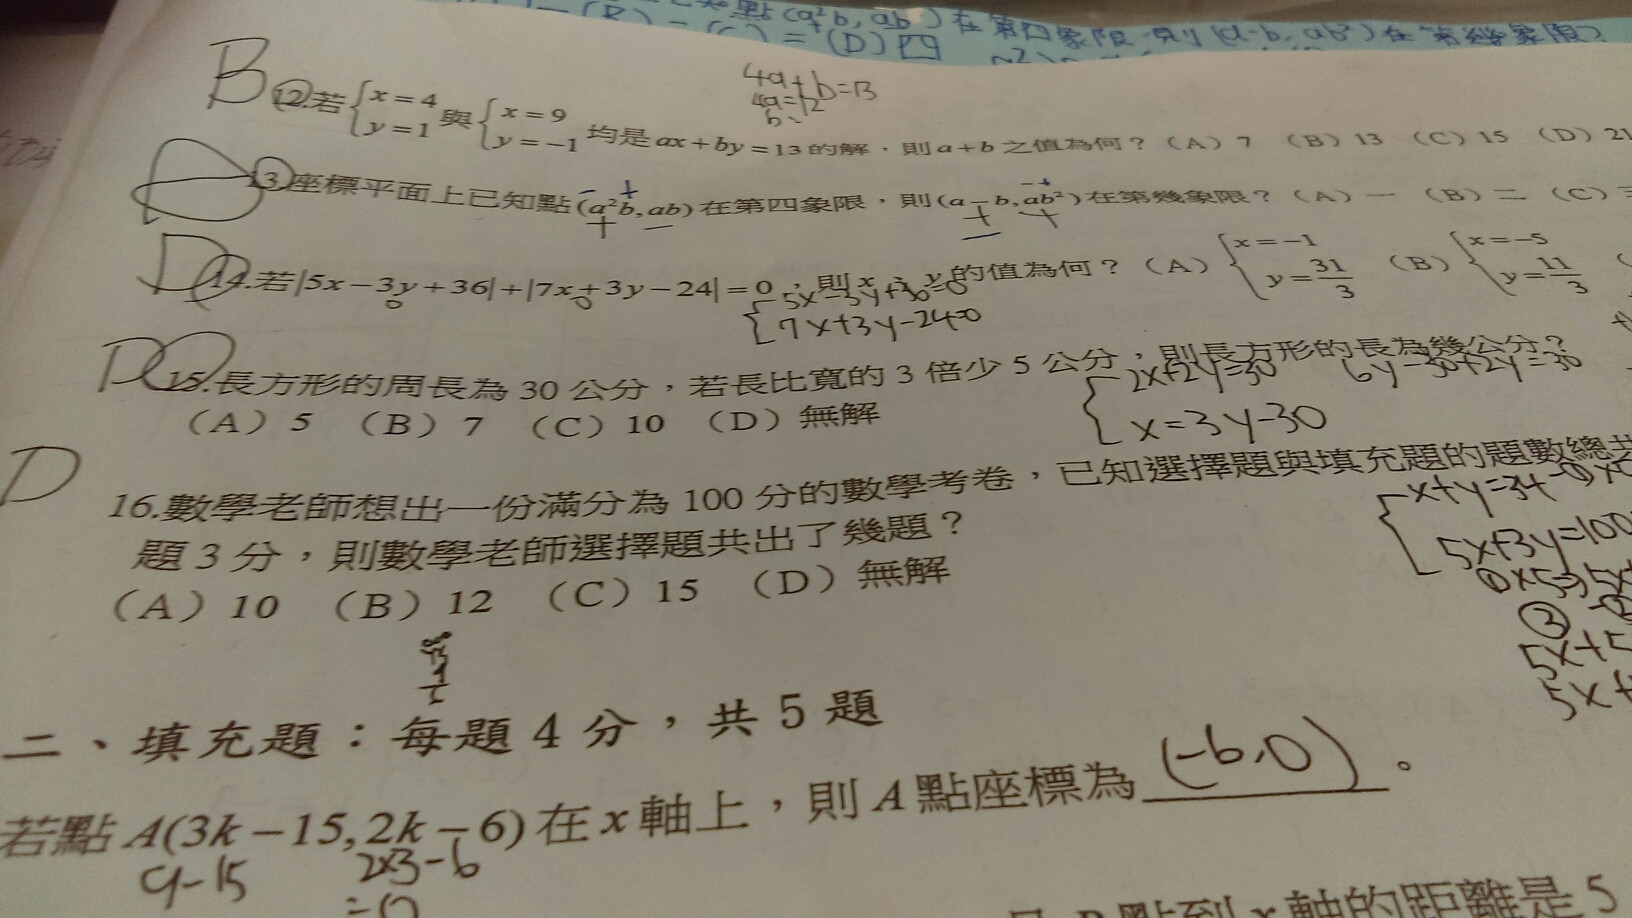 知點(a²b, ab)在第四象限,則(a-b, ab²)在第幾象限?
(D)四
4a+b=13
4a=12
B 12.若{x=4 y=1 與{x=9 y=-1 均是ax+by=13的解,則a+b之值為何?(A)7 (B)13 (C)15 (D)21
13.座標平面上已知點(a²b, ab)在第四象限,則(a-b, ab²)在第幾象限?(A)一 (B)二 (C)三
D 14.若|5x-3y+36|+|7x+3y-24|=0,則x、y的值為何?(A){x=-1 y=31/3 (B){x=-5 y=11/3 (
7x+3y-24=0
D 15.長方形的周長為30公分,若長比寬的3倍少5公分,則長方形的長為幾公分?
{2x+2y=30 6y-30+2y=30
x=3y-30
(A)5 (B)7 (C)10 (D)無解
D
16.數學老師想出一份滿分為100分的數學考卷,已知選擇題與填充題的題數總共
{x+y=34
題3分,則數學老師選擇題共出了幾題?
5x+3y=100
(A)10 (B)12 (C)15 (D)無解
5x+5
5x+
二、填充題:每題4分,共5題
若點A(3k-15,2k-6)在x軸上,則A點座標為(-6,0)。
9-15 2×3-6
=0
點到x軸的距離是5